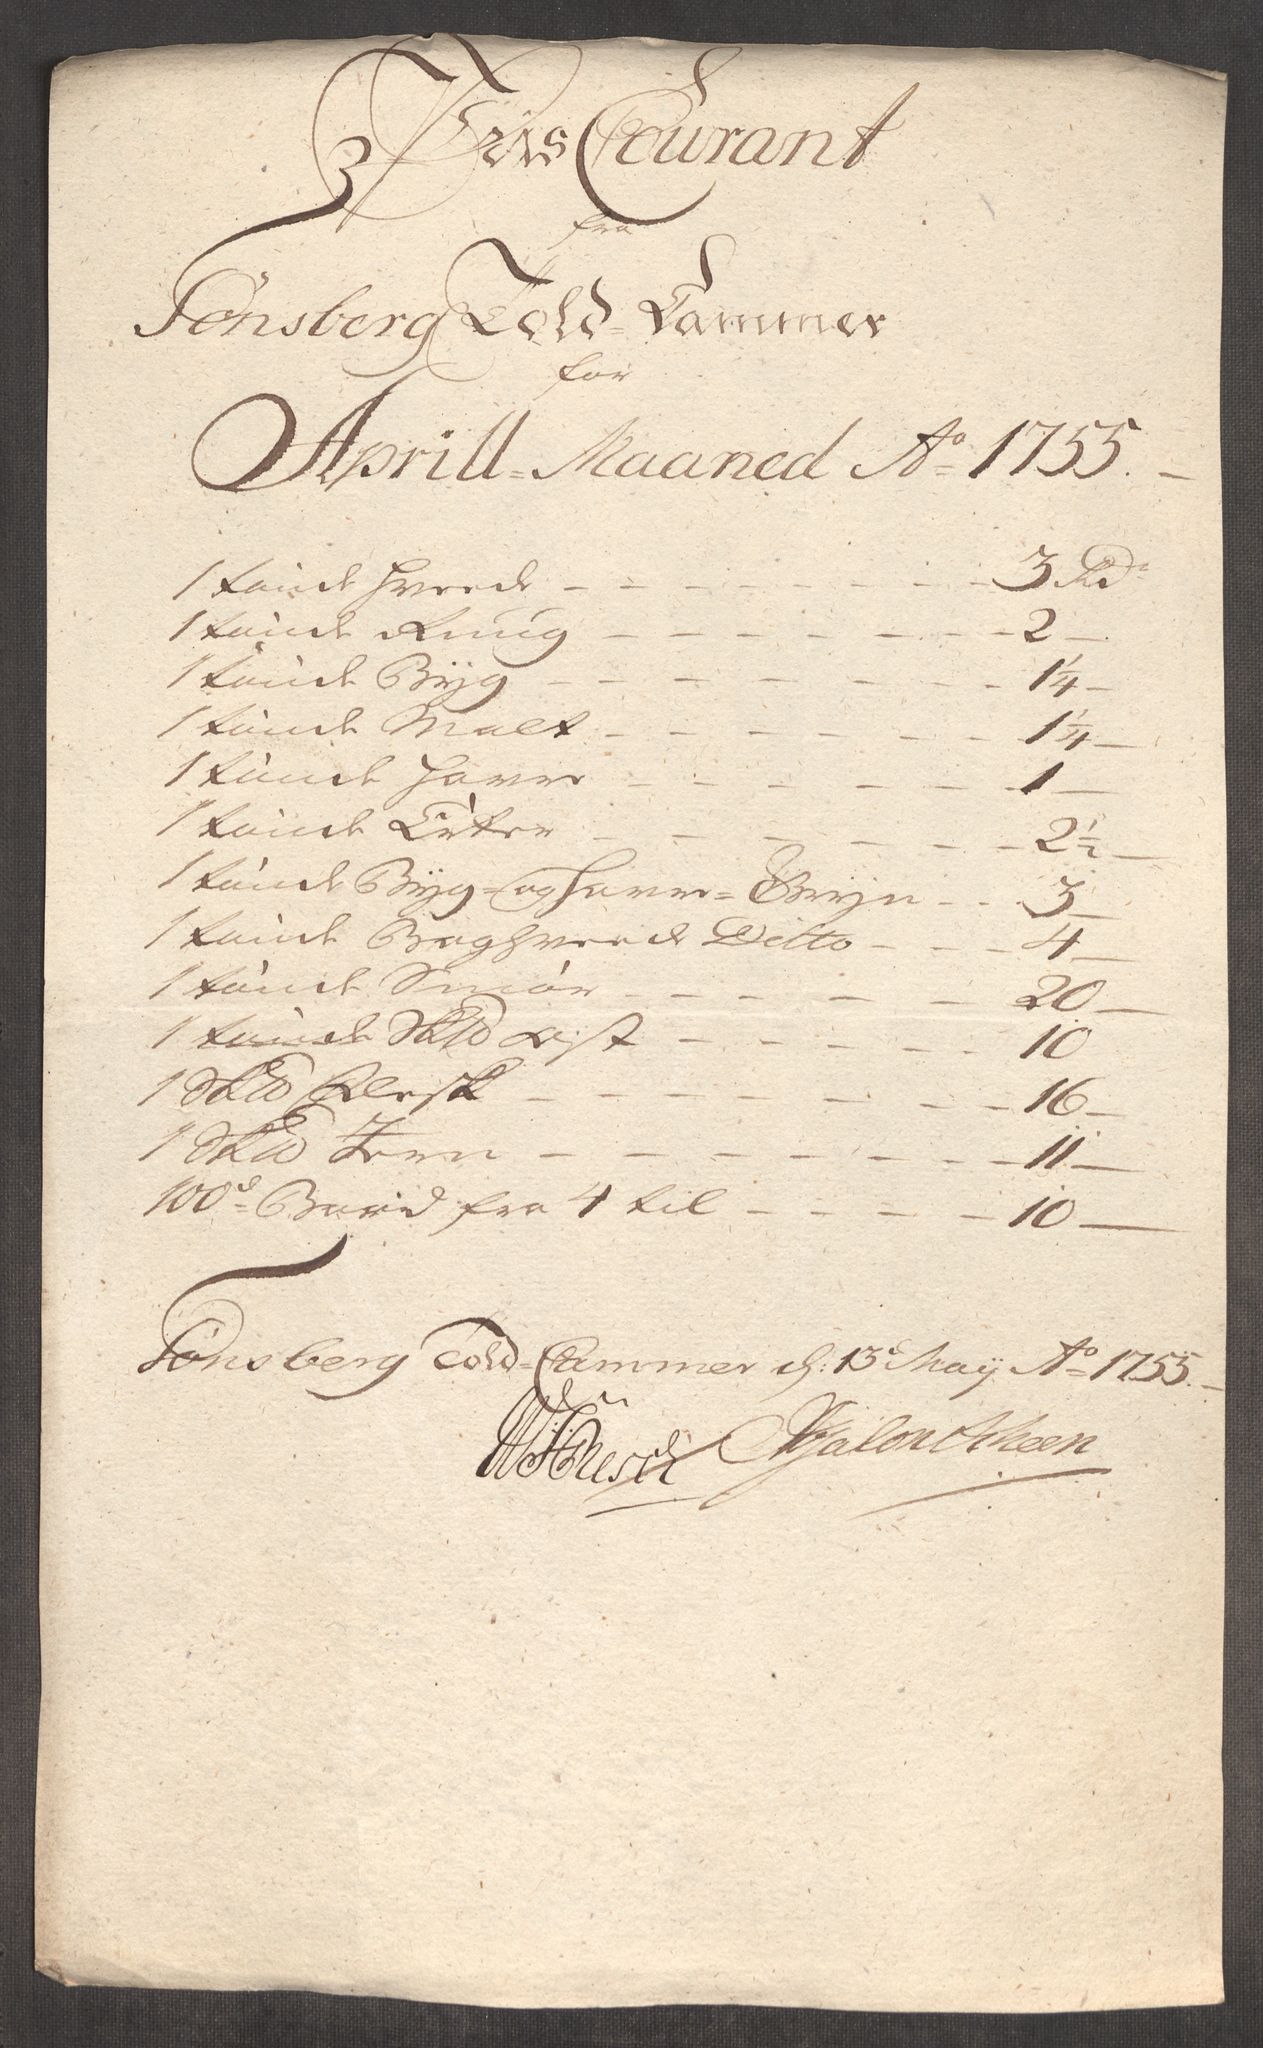 Priis Courant
fra
Tönsberg Told-Cammer
for
Aprill-Maaned Ao 1755.
1 tønde Hveede - - - 3 Rd
1 tønde Rúug - - - 2
1 tønde Byg - - - 1 1/4
1 tønde Malt - - - 1 1/4
1 tønde Havre - - - 1
1 tønde Erter - - - 2 1/2
1 tønde Byg- og Havre-Gryn - - 3
1 tønde Boghveede Ditto - - - 4
1 tønde Smør - - - 20
1 tønde Sk℔ Ost - - - 10
1 Sk℔ Flesk - - - 16
1 Sk℔ Jern - - - 11
100d Bord fra 4 til - - - 10
Tönsberg Told-Cammer d: 13de Maij Ao 1755.